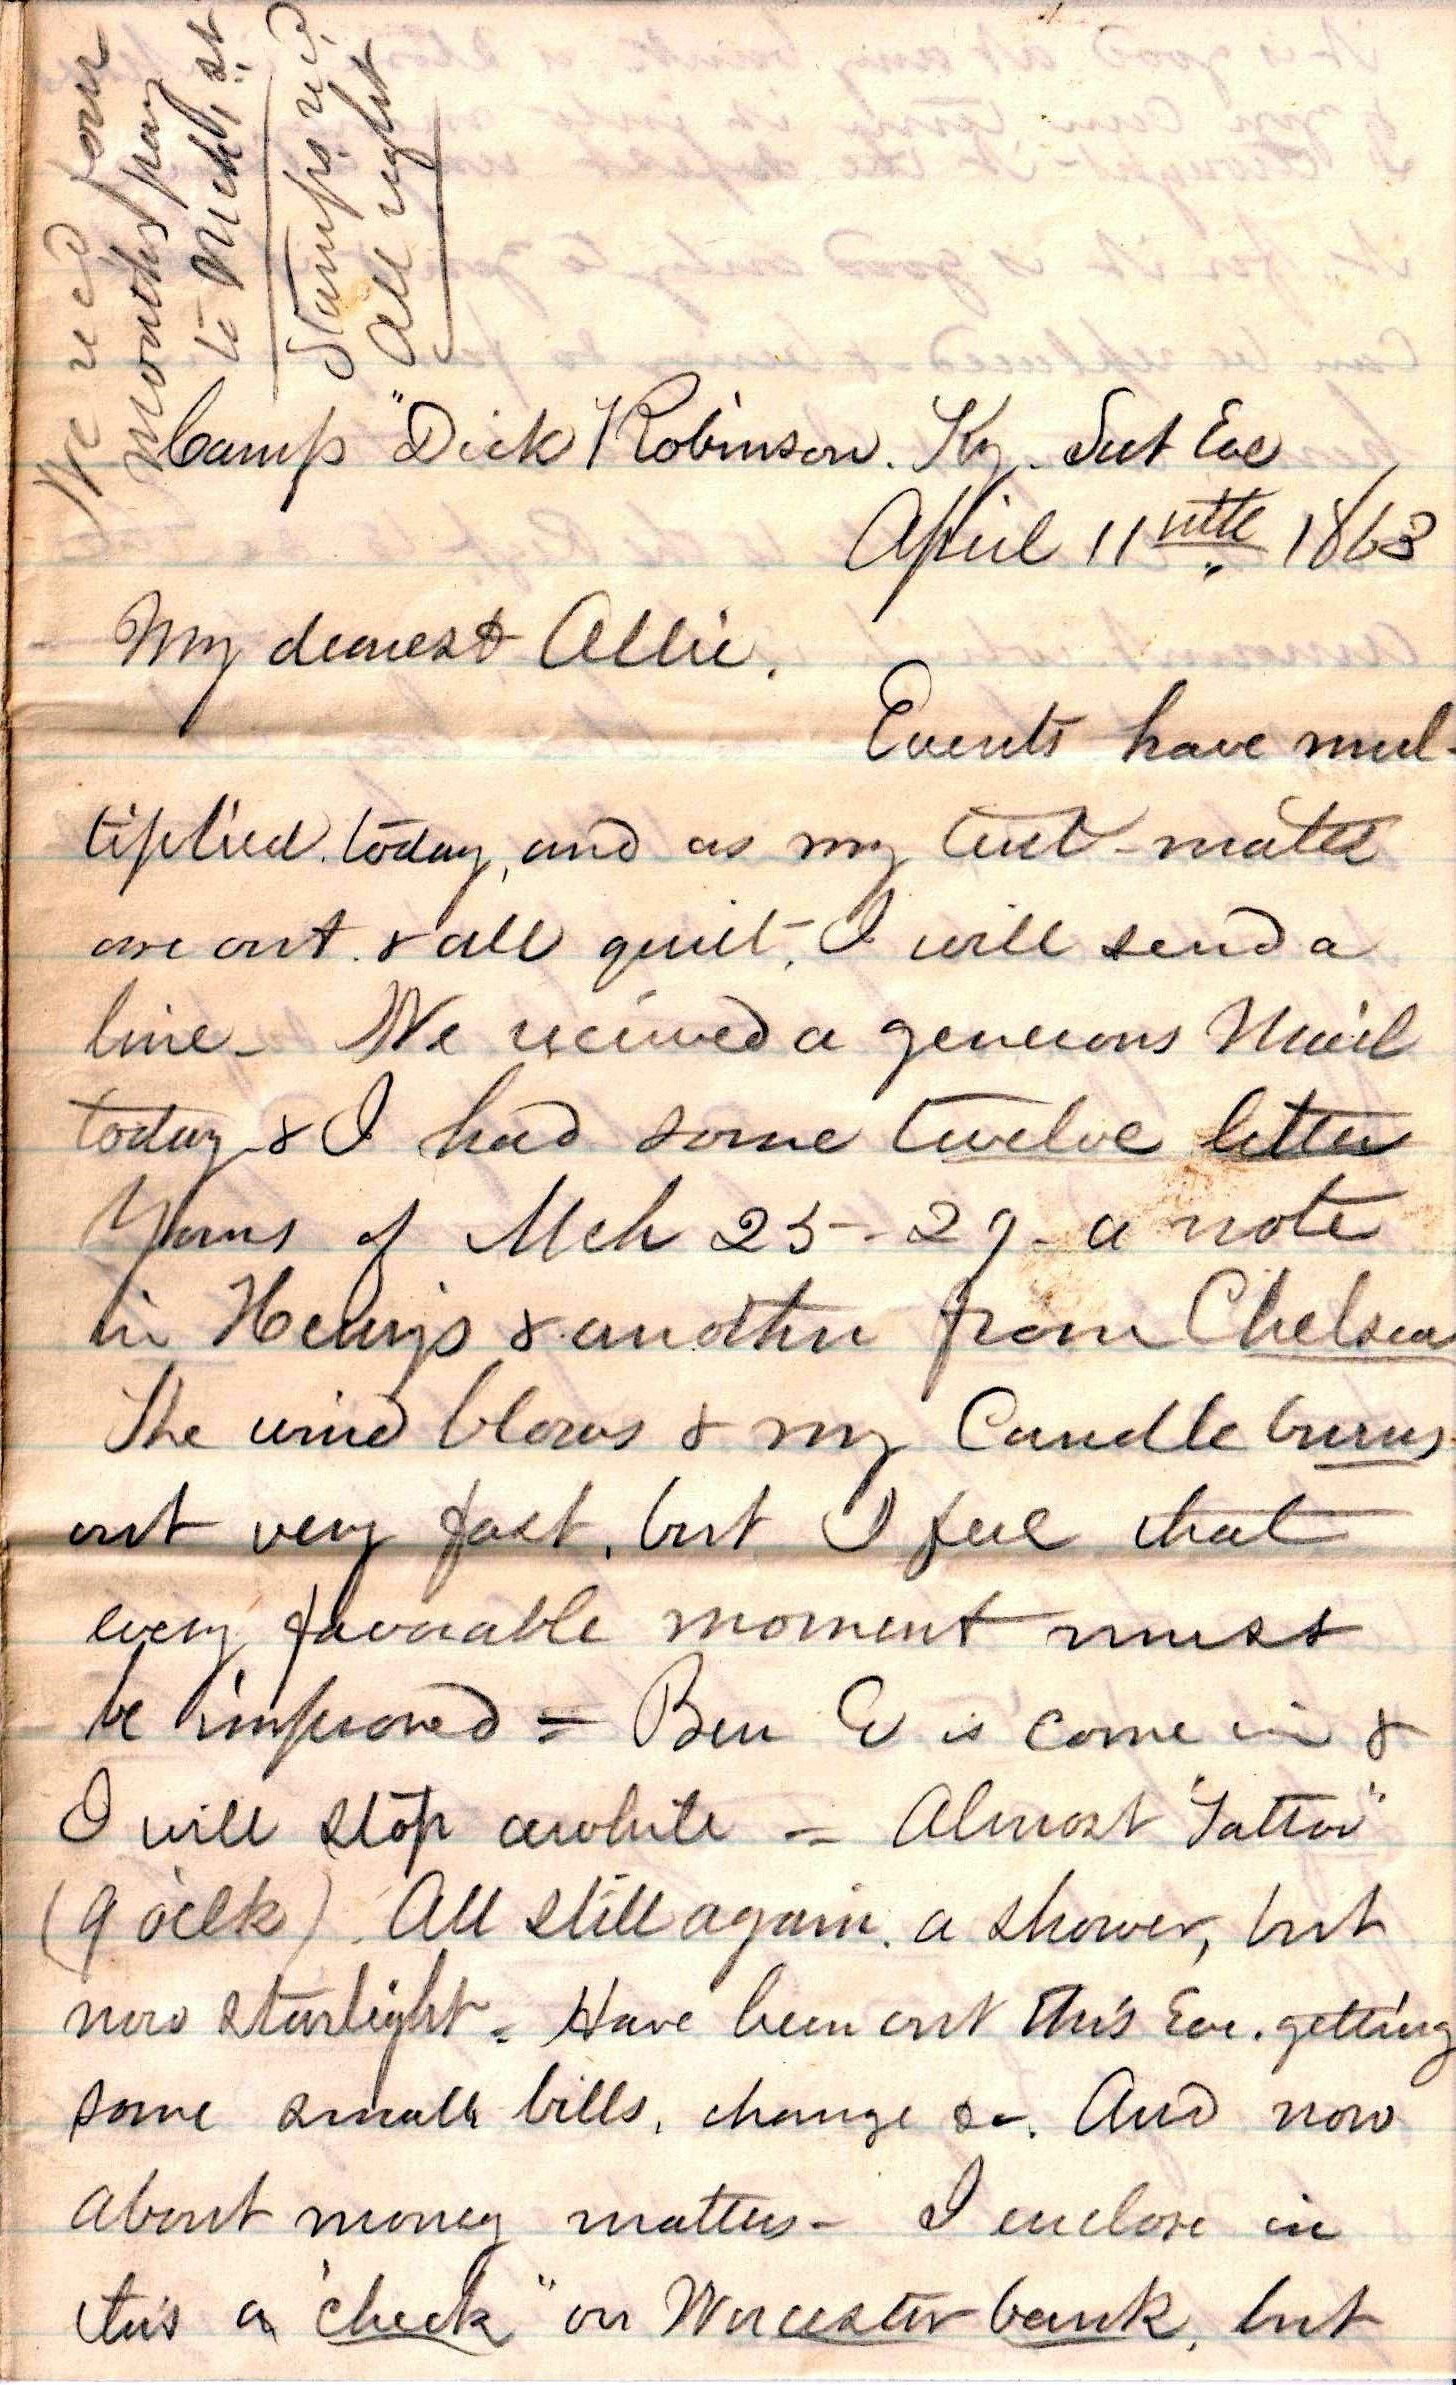 We rec'd four
months pay
to Mch 1st
Stamps rec'd
all right
Camp "Dick Robinson. Ky. Sat Eve
April 11nth 1863
My dearest Allie.
Events have mul-
tiplied today, and as my tent-mates
are out & all quiet, I will send a
line - We received a generous Mail
today & I had some twelve letters
Yours of Mch 25 - 29 - a note
in Henrys & another from Chelsea
The wind blows & my Candle burns
out very fast, but I feel that
every favorable moment must
be improved = Ben E is come in &
I will stop awhile = Almost "Tattoo"
(9 oclk) All still again. a shower, but
now starlight = Have been out this Eve. getting
some small bills, change &c. And now
about money matters - I enclose in
this a "check" on Worcester bank, but